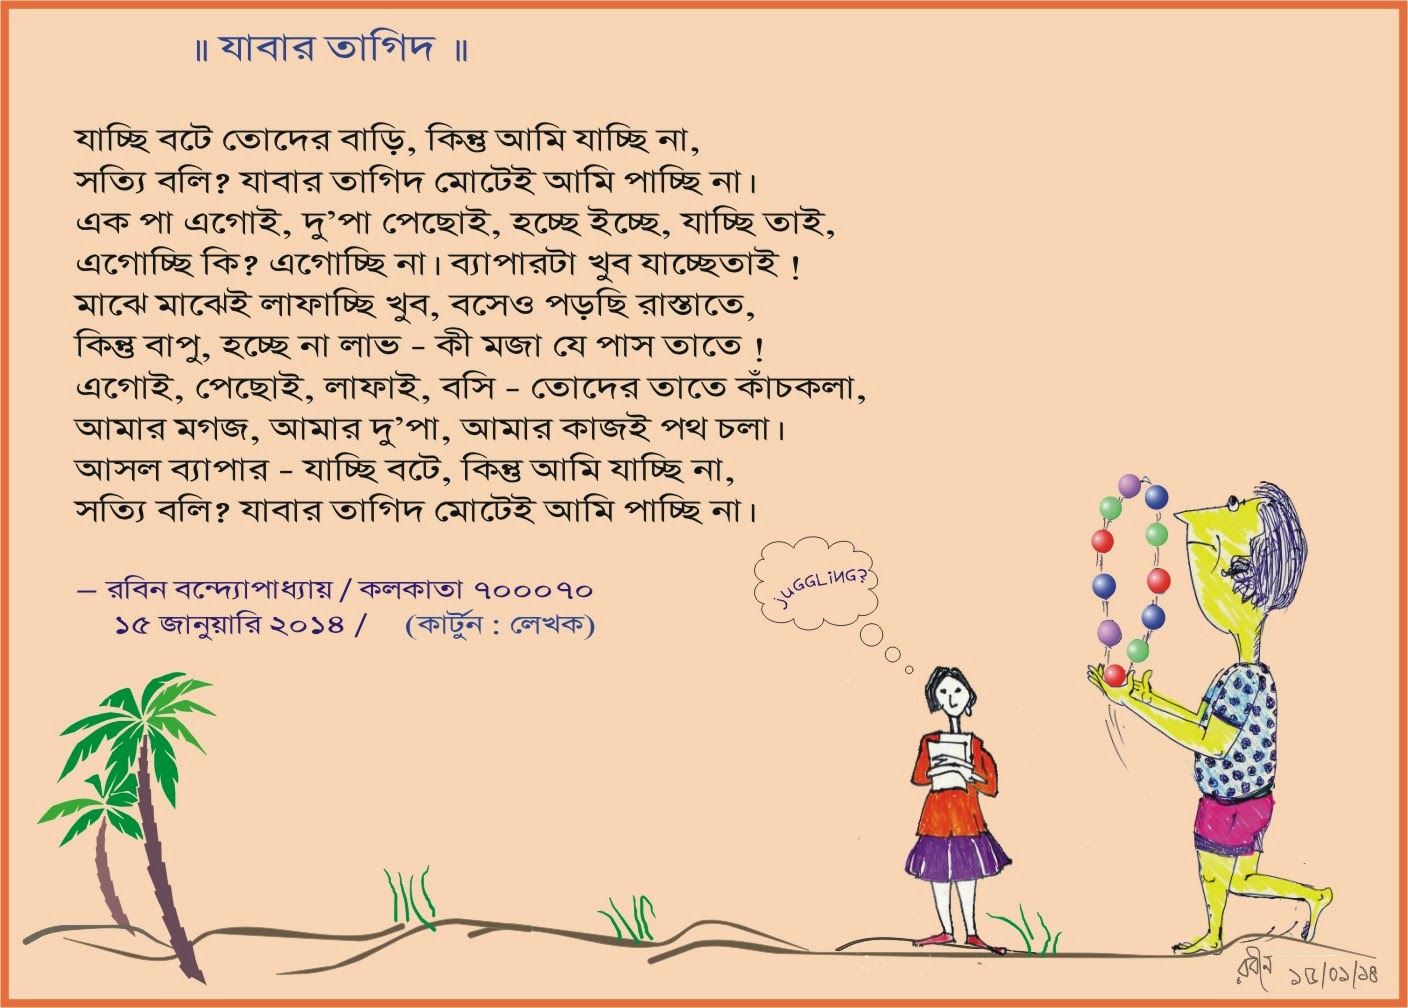 ॥ যাবার তাগিদ ॥
যাচ্ছি বটে তোদের বাড়ি, কিন্তু আমি যাচ্ছি না,
সত্যি বলি? যাবার তাগিদ মোটেই আমি পাচ্ছি না।
এক পা এগোই, দু’পা পেছোই, হচ্ছে ইচ্ছে, যাচ্ছি তাই,
এগোচ্ছি কি? এগোচ্ছি না। ব্যাপারটা খুব যাচ্ছেতাই !
মাঝে মাঝেই লাফাচ্ছি খুব, বসেও পড়ছি রাস্তাতে,
কিন্তু বাপু, হচ্ছে না লাভ - কী মজা যে পাস তাতে !
এগোই, পেছোই, লাফাই, বসি - তোদের তাতে কাঁচকলা,
আমার মগজ, আমার দু’পা, আমার কাজই পথ চলা।
আসল ব্যাপার - যাচ্ছি বটে, কিন্তু আমি যাচ্ছি না,
সত্যি বলি? যাবার তাগিদ মোটেই আমি পাচ্ছি না।
– রবিন বন্দ্যোপাধ্যায় / কলকাতা ৭০০০৭০
১৫ জানুয়ারি ২০১৪ / (কার্টুন : লেখক)
juGGLiNG?
রবীন ১৫/০১/১৪